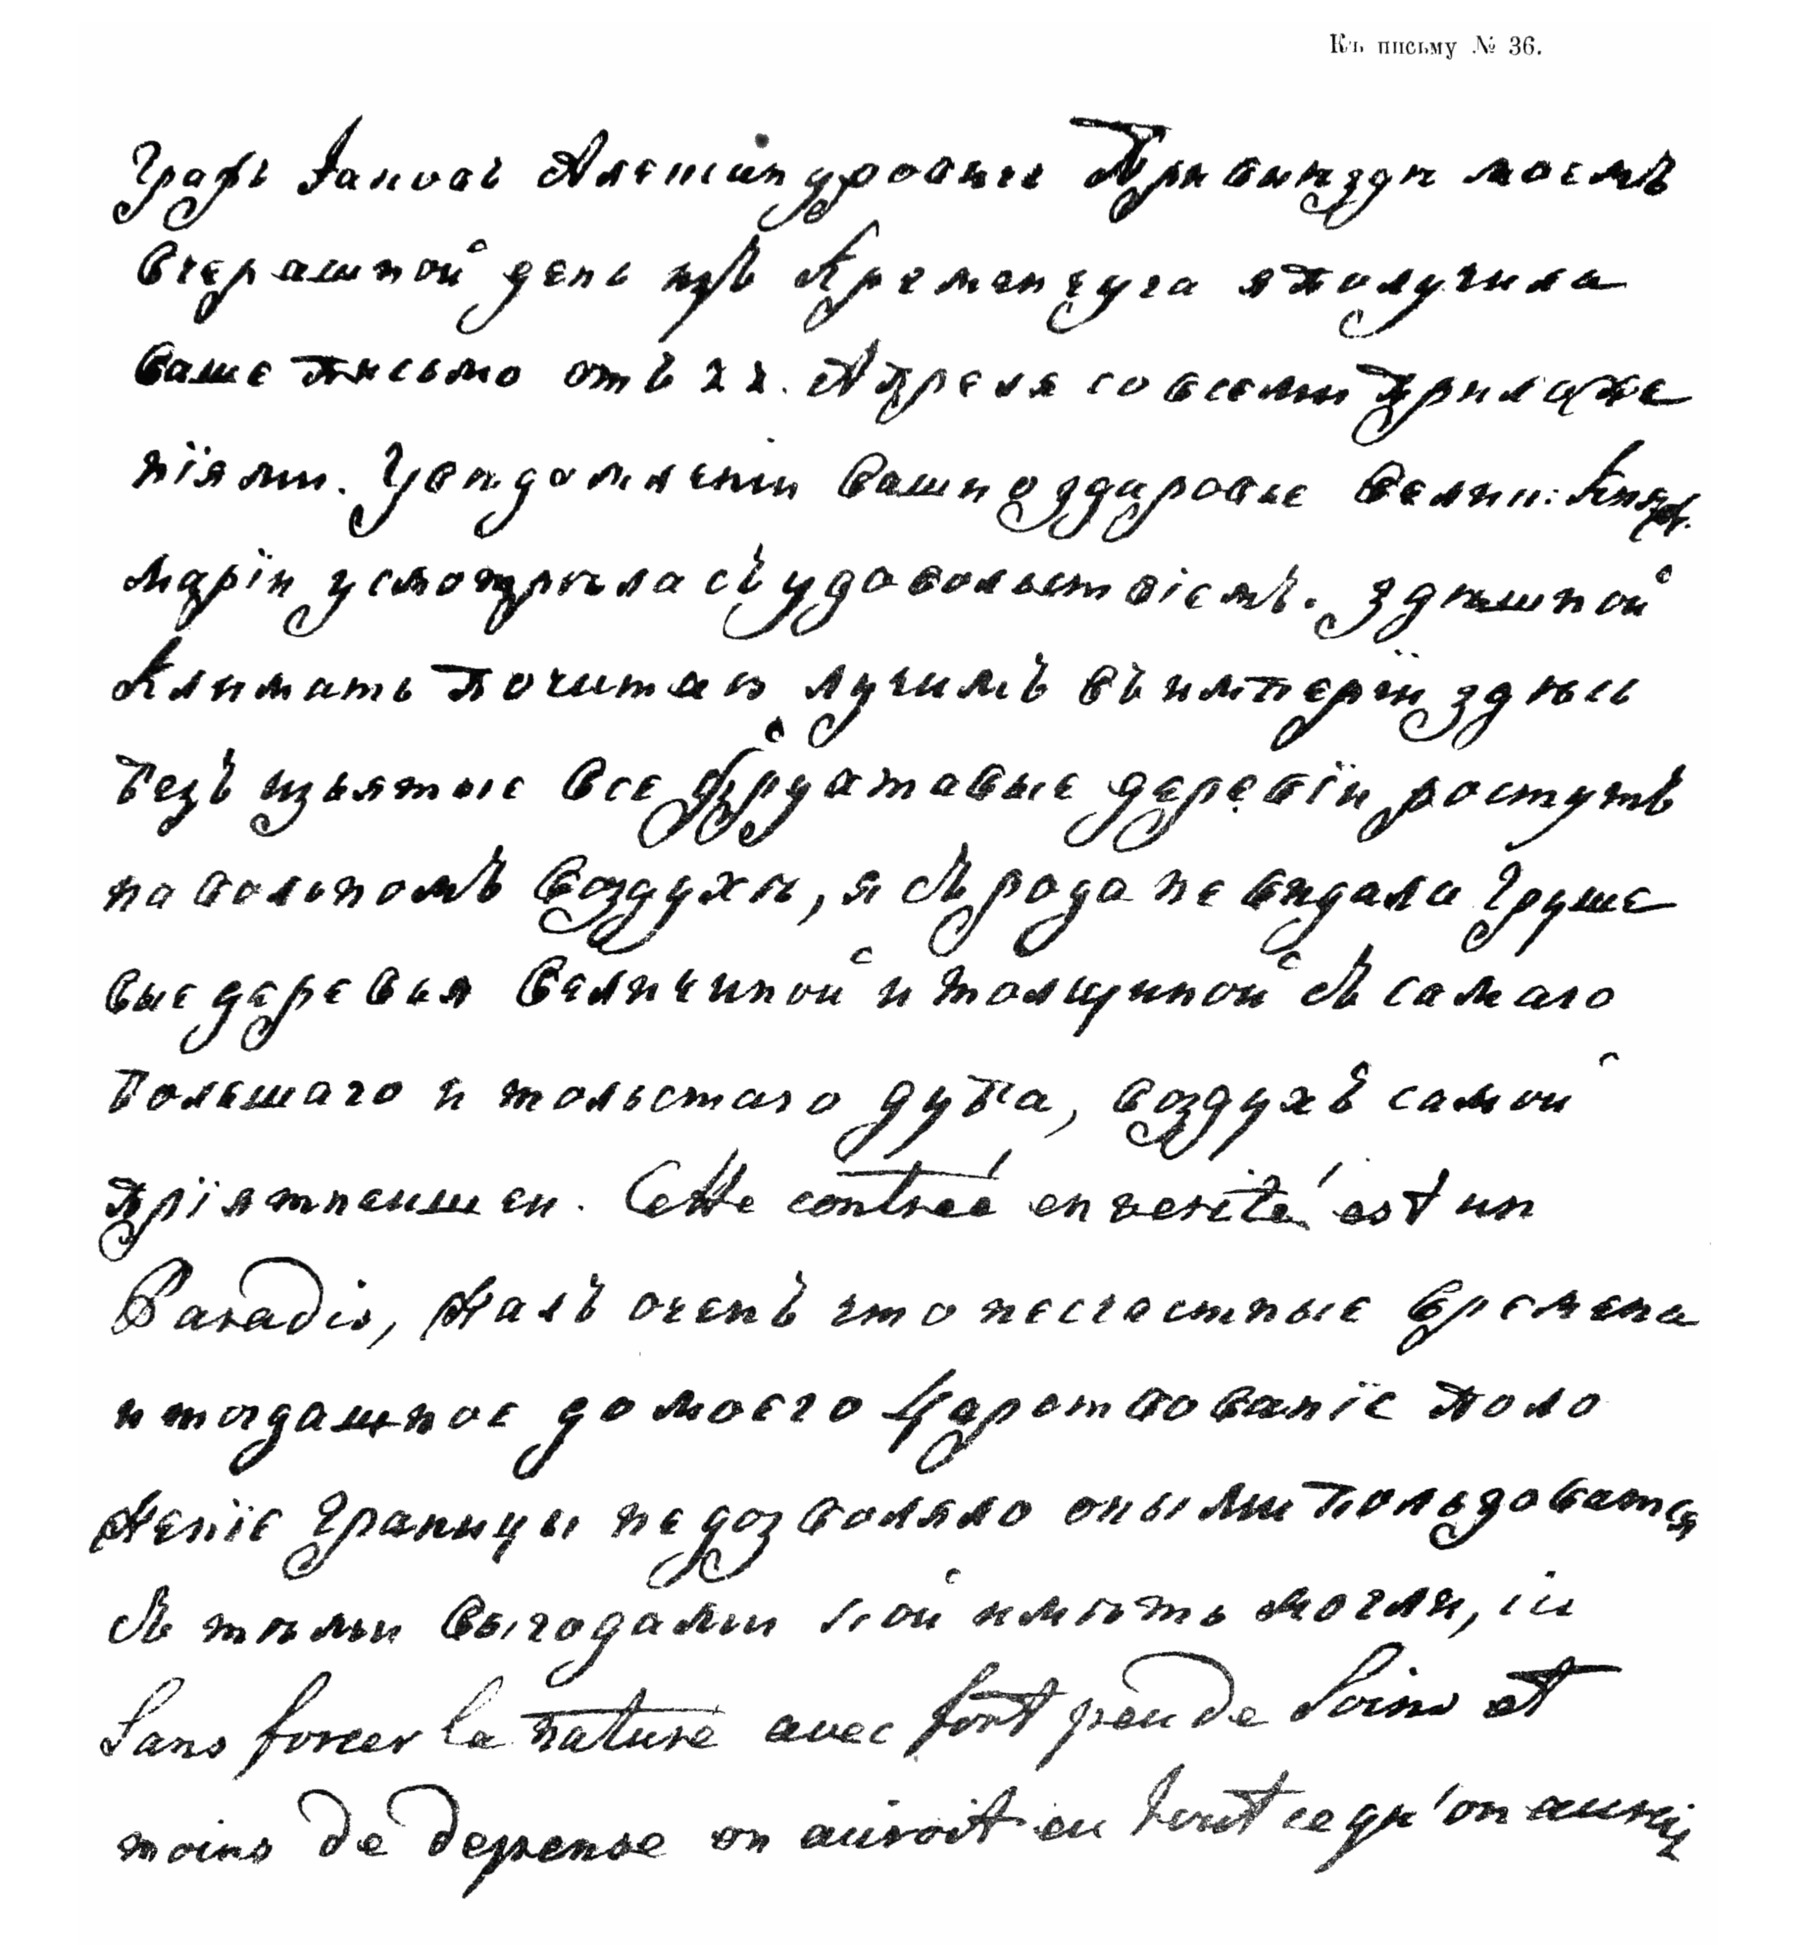 Къ письму № 36.
Графъ Іаковъ Александровичь Привыѣзди моемъ
вчерашной день изъ Кременчуга я получила
ваше письмо отъ 22. Апреля со всеми приложе
ніями. Уведомленіи ваши о здаровье Велик: Княж.
маріи усмотрѣла съ удовольствіемъ. Здѣшной
Климатъ почитаю лучимъ въ имперіи здѣсь
безъ изъятые все фруктовые деревіи ростутъ
на вольномъ воздухѣ, я съ рода не видала Груше
вые деревья величиной и толщиной съ самаго
большаго и толстаго дуба, воздухъ самой
пріятнеишеи. Cette contreé en verité est un
Paradis, жаль очень что несчастные времена
и тогдашное до моего Царствованіе поло
женіе Границы не дозволяло оными пользоватся
съ тѣми выгодами кои имѣть могли, ici
Sans forcer la nature avec fort peu de Soins et
moins de depense on auroit eu tout ce qu'on